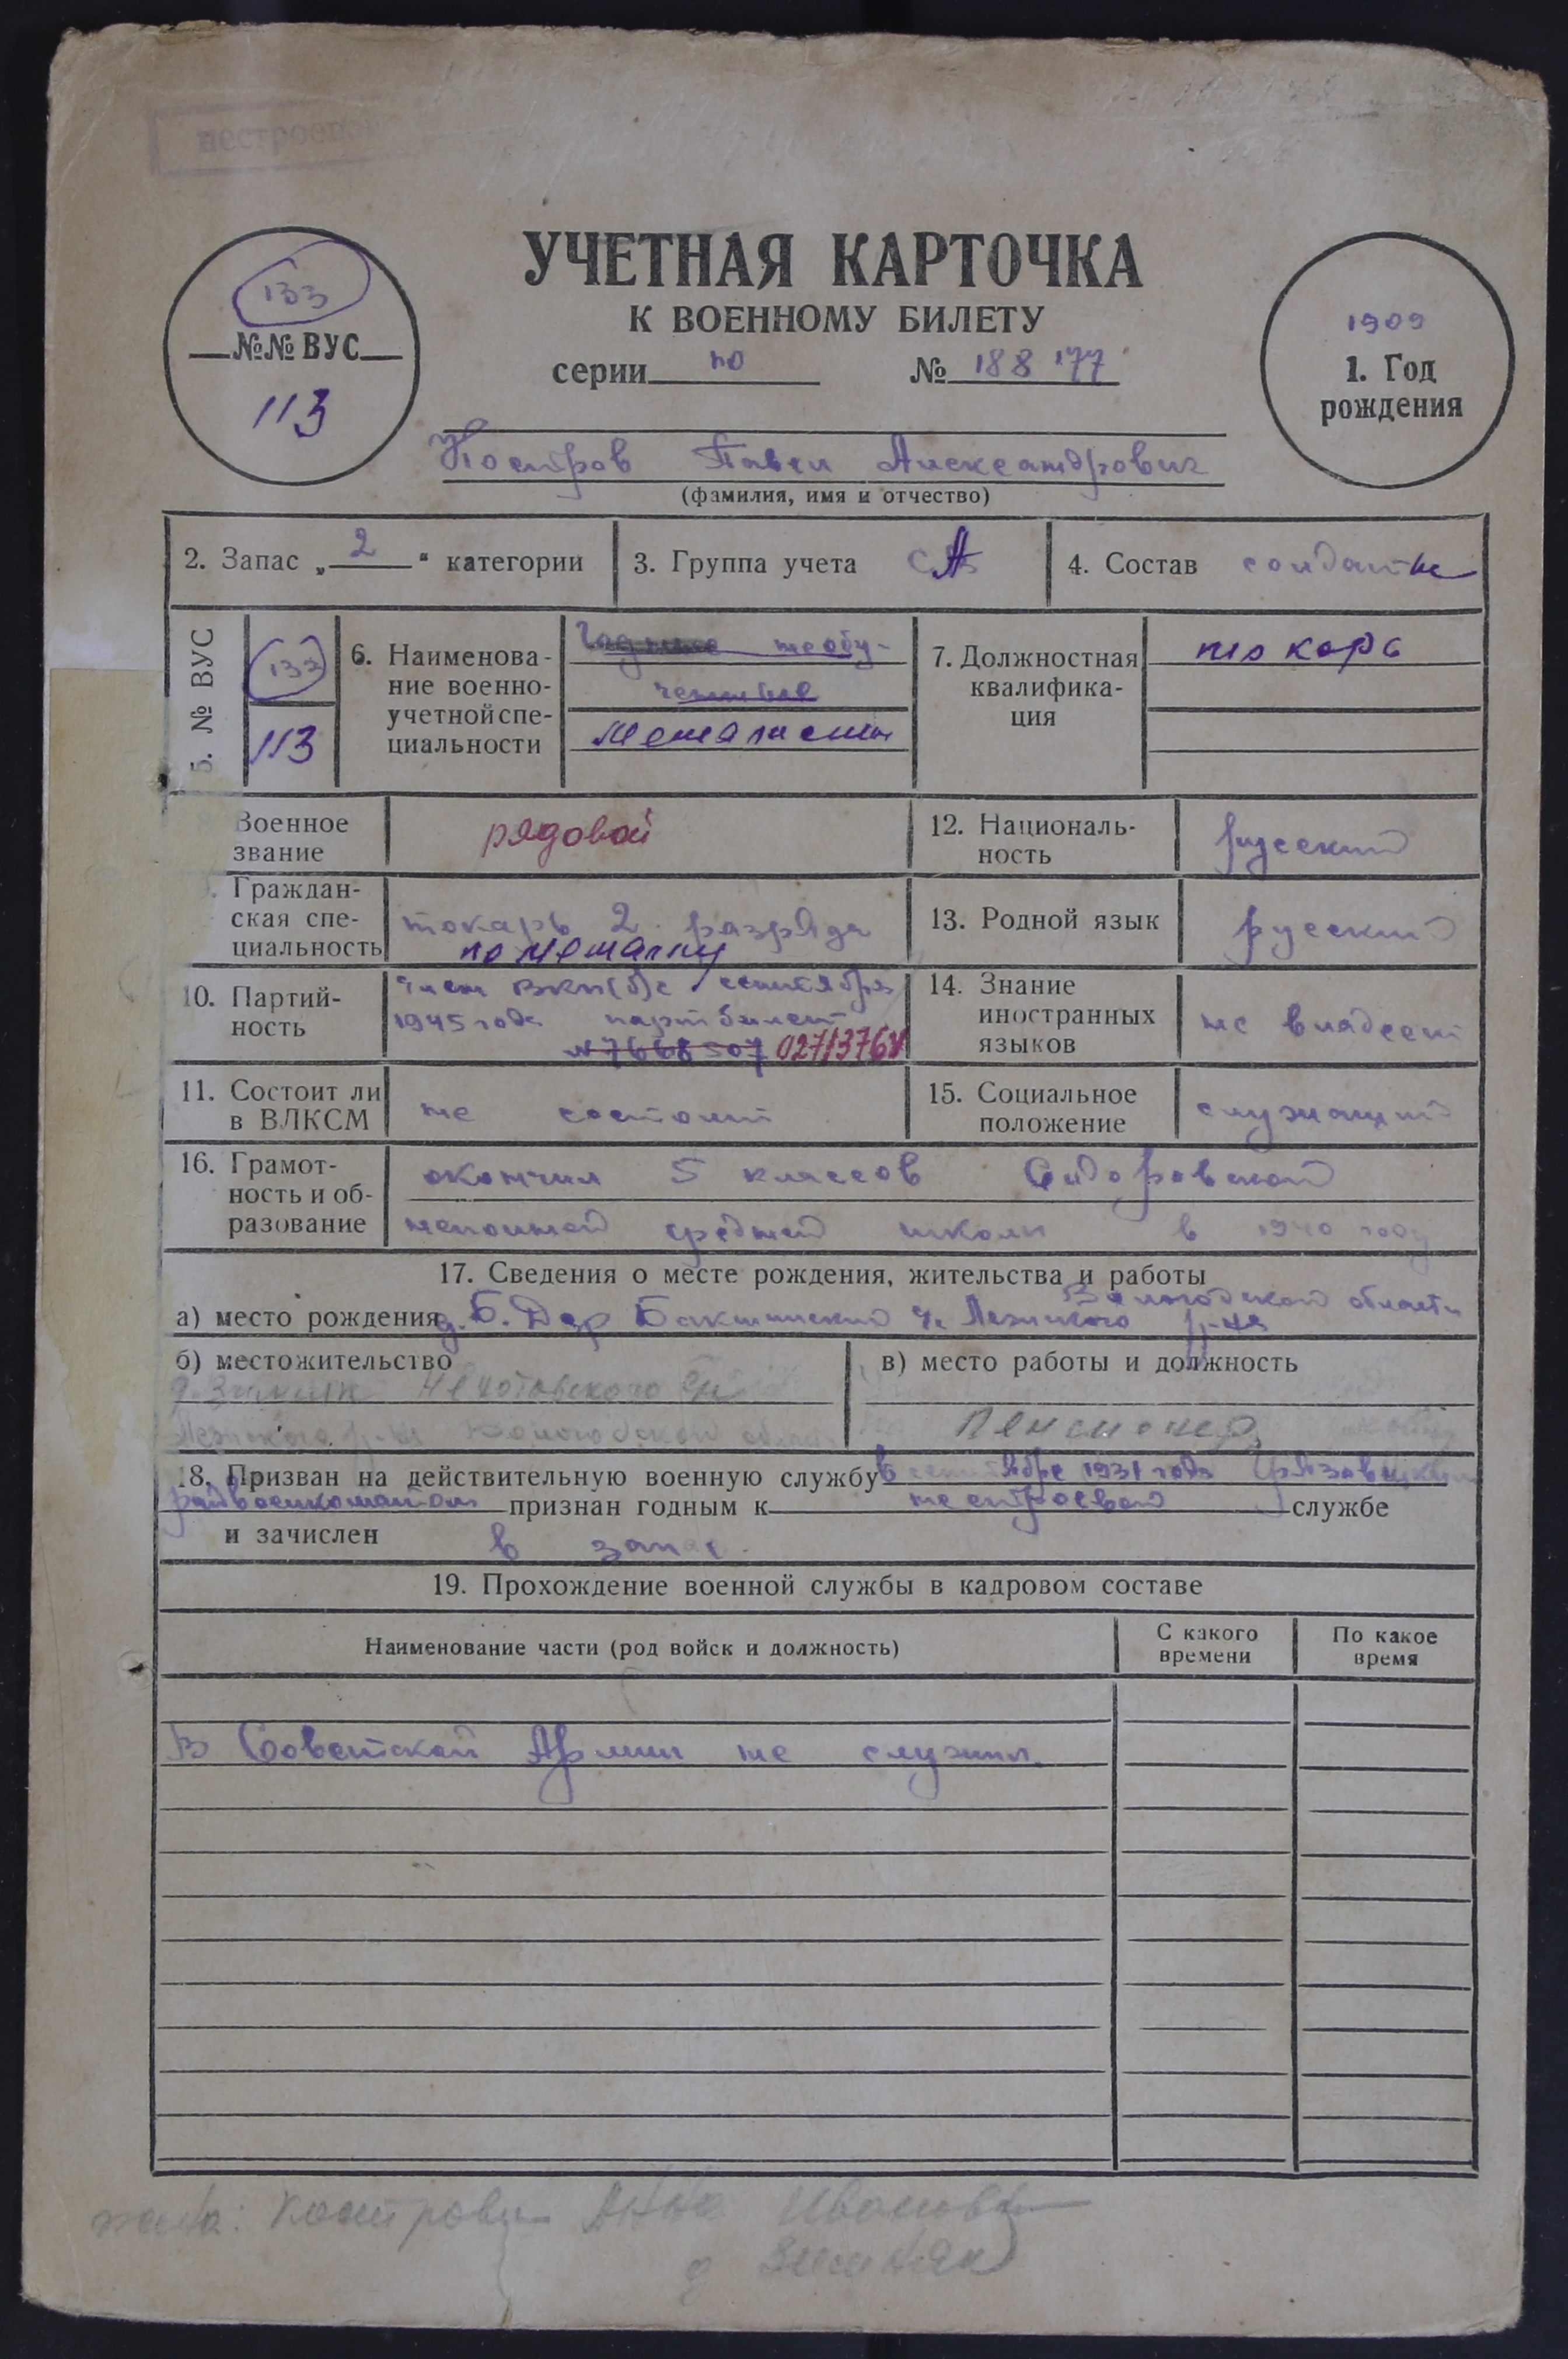 нестроевой
УЧЕТНАЯ КАРТОЧКА
К ВОЕННОМУ БИЛЕТУ
серии по № 188177
133
№№ ВУС
113
1909
1. Год
рождения
Костров Павел Александрович
(фамилия, имя и отчество)
2. Запас „ 2 “ категории
3. Группа учета СА
4. Состав солдаты
5. № ВУС
133
113
6. Наименова-
ние военно-
учетной спе-
циальности
необу-
ченные
Металисты
7. Должностная
квалифика-
ция
токарь
Военное
звание
рядовой
12. Националь-
ность
русский
Граждан-
ская спе-
циальность
токарь 2 разряда
по металлу
13. Родной язык
русский
10. Партий-
ность
член ВКП(б) с сентября
1945 года партбилет
№ 7668507 02713764
14. Знание
иностранных
языков
не владеет
11. Состоит ли
в ВЛКСМ
не состоит
15. Социальное
положение
служащий
16. Грамот-
ность и об-
разование
окончил 5 классов Сидоровской
неполной средней школы в 1940 году
17. Сведения о месте рождения, жительства и работы
Вологодской области
а) место рождения д. Б. Двор Бакшинский Лежского р-на
б) местожительство
д. Зимняк
Лежского р-на Вологодской
в) место работы и должность
Пенсионер
18. Призван на действительную военную службу в сентябре 1931 года Грязовецким
райвоенкоматом признан годным к нестроевой службе
и зачислен в запас.
19. Прохождение военной службы в кадровом составе
Наименование части (род войск и должность)
С какого
времени
По какое
время
В Советской Армии не служил.
жена: Кострова Анна Ивановна
д Зимняк